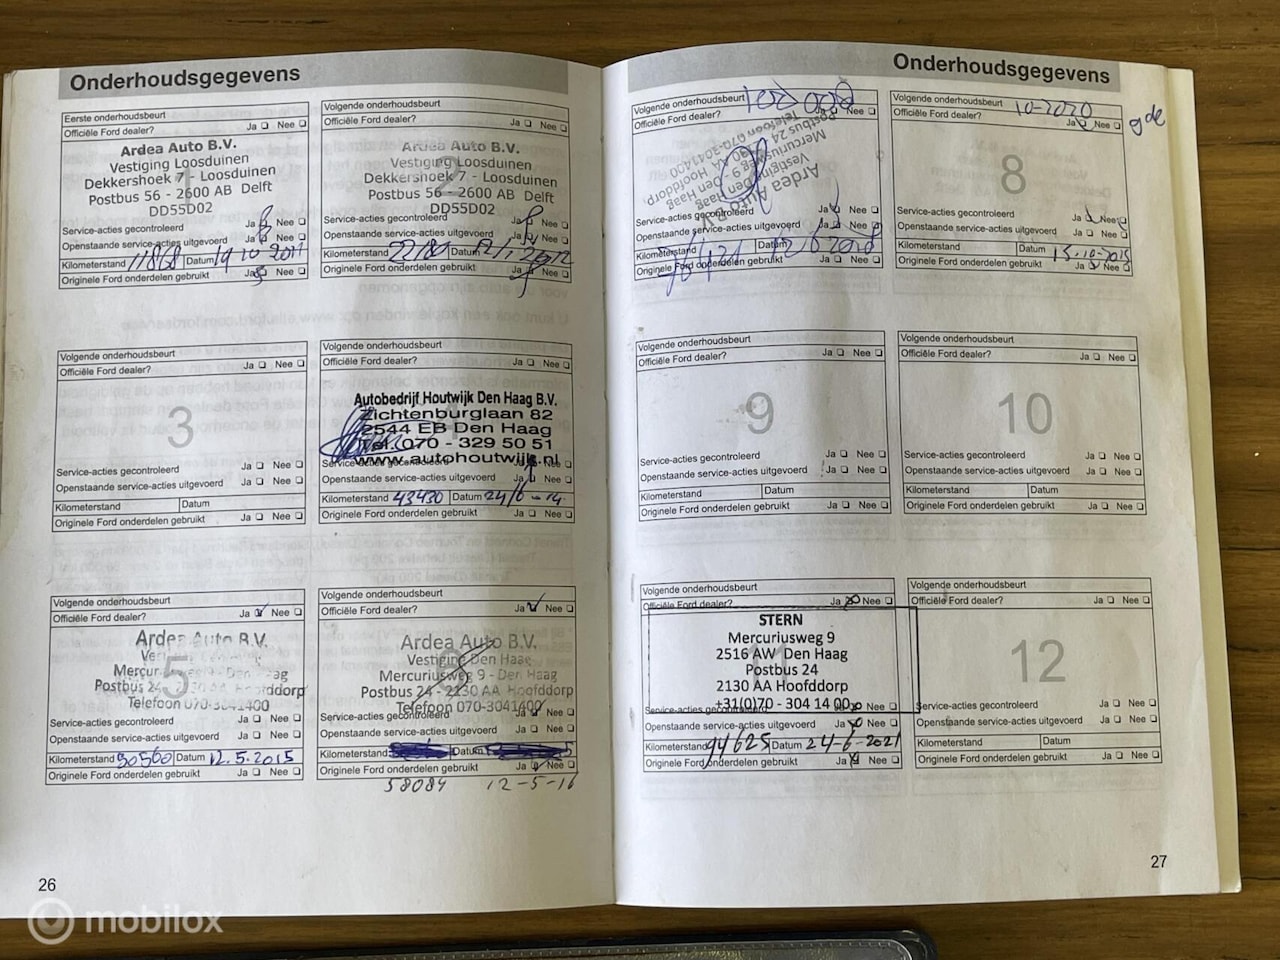 Onderhoudsgegevens
Eerste onderhoudsbeurt
Officiële Ford dealer? Ja Nee
Ardea Auto B.V.
Vestiging Loosduinen
Dekkershoek 7 - Loosduinen
Postbus 56 - 2600 AB Delft
DD55D02
1
Service-acties gecontroleerd Ja Nee
Openstaande service-acties uitgevoerd Ja Nee
Kilometerstand 11868 Datum 19 10 2011
Originele Ford onderdelen gebruikt Ja Nee
Volgende onderhoudsbeurt
Officiële Ford dealer? Ja Nee
Ardea Auto B.V.
Vestiging Loosduinen
Dekkershoek 7 - Loosduinen
Postbus 56 - 2600 AB Delft
DD55D02
2
Service-acties gecontroleerd Ja Nee
Openstaande service-acties uitgevoerd Ja Nee
Kilometerstand Datum
Originele Ford onderdelen gebruikt Ja Nee
Volgende onderhoudsbeurt
Officiële Ford dealer? Ja Nee
3
Service-acties gecontroleerd Ja Nee
Openstaande service-acties uitgevoerd Ja Nee
Kilometerstand Datum
Originele Ford onderdelen gebruikt Ja Nee
Volgende onderhoudsbeurt
Officiële Ford dealer? Ja Nee
Autobedrijf Houtwijk Den Haag B.V.
Zichtenburglaan 82
2544 EB Den Haag
Tel. 070 - 329 50 51
www.autohoutwijk.nl
4
Service-acties gecontroleerd Ja Nee
Openstaande service-acties uitgevoerd Ja Nee
Kilometerstand 43430 Datum 24/6-14
Originele Ford onderdelen gebruikt Ja Nee
Volgende onderhoudsbeurt
Officiële Ford dealer? Ja Nee
Ardea Auto B.V.
Mercur 9 - Den Haag
Postbus 24 - AA Hoofddorp
Telefoon 070-3041400
5
Service-acties gecontroleerd Ja Nee
Openstaande service-acties uitgevoerd Ja Nee
Kilometerstand 50560 Datum 12.5.2015
Originele Ford onderdelen gebruikt Ja Nee
Volgende onderhoudsbeurt
Officiële Ford dealer? Ja Nee
Ardea Auto B.V.
Vestiging Den Haag
Mercuriusweg 9 - Den Haag
Postbus 24 - 2130 AA Hoofddorp
Telefoon 070-3041400
6
Service-acties gecontroleerd Ja Nee
Openstaande service-acties uitgevoerd Ja Nee
Kilometerstand Datum
Originele Ford onderdelen gebruikt Ja Nee
58084 12-5-16
26
Onderhoudsgegevens
Volgende onderhoudsbeurt
Officiële Ford dealer?
Ardea Auto B.V.
Vestiging Den Haag
Mercuriusweg 9 - Den Haag
Postbus 24 AA Hoofddorp
Telefoon 070-3041400
Service-acties gecontroleerd Ja Nee
Openstaande service-acties uitgevoerd Ja Nee
Kilometerstand Datum
Originele Ford onderdelen gebruikt Ja Nee
Volgende onderhoudsbeurt 10-2020
Officiële Ford dealer? Ja Nee
8
Service-acties gecontroleerd Ja Nee
Openstaande service-acties uitgevoerd Ja Nee
Kilometerstand Datum
Originele Ford onderdelen gebruikt Ja Nee
Volgende onderhoudsbeurt
Officiële Ford dealer? Ja Nee
9
Service-acties gecontroleerd Ja Nee
Openstaande service-acties uitgevoerd Ja Nee
Kilometerstand Datum
Originele Ford onderdelen gebruikt Ja Nee
Volgende onderhoudsbeurt
Officiële Ford dealer? Ja Nee
10
Service-acties gecontroleerd Ja Nee
Openstaande service-acties uitgevoerd Ja Nee
Kilometerstand Datum
Originele Ford onderdelen gebruikt Ja Nee
Volgende onderhoudsbeurt
Officiële Ford dealer? Ja Nee
STERN
Mercuriusweg 9
2516 AW Den Haag
Postbus 24
2130 AA Hoofddorp
+31(0)70 - 304 14 00
11
Service-acties gecontroleerd Ja Nee
Openstaande service-acties uitgevoerd Ja Nee
Kilometerstand 94625 Datum 24-6-2021
Originele Ford onderdelen gebruikt Ja Nee
Volgende onderhoudsbeurt
Officiële Ford dealer? Ja Nee
12
Service-acties gecontroleerd Ja Nee
Openstaande service-acties uitgevoerd Ja Nee
Kilometerstand Datum
Originele Ford onderdelen gebruikt Ja Nee
27
mobilox